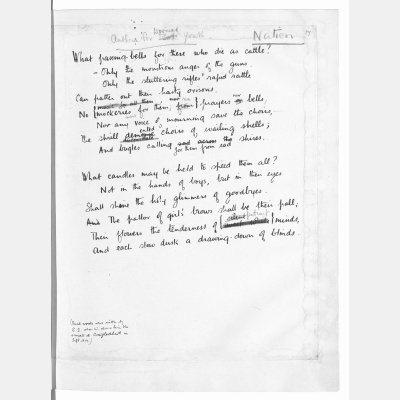 Anthem for Doomed Youth Nation
What passing-bells for these who die as cattle?
- Only the monstrous anger of the guns.
Only the stuttering rifles' rapid rattle
Can patter out their hasty orisons.
No mockeries for them; from prayers nor bells,
Nor any voice of mourning save the choirs, -
The shrill demented choirs of wailing shells;
And bugles calling sad across the shires.
for them from sad
What candles may be held to speed them all?
Not in the hands of boys, but in their eyes
Shall shine the holy glimmers of goodbyes.
And the pallor of girls' brows shall be their pall;
Their flowers the tenderness of silent patient minds,
And each slow dusk a drawing-down of blinds.
(Pencil words were written by
S.S. when
sonnet at Craiglockhart in
Sept. 1917.)